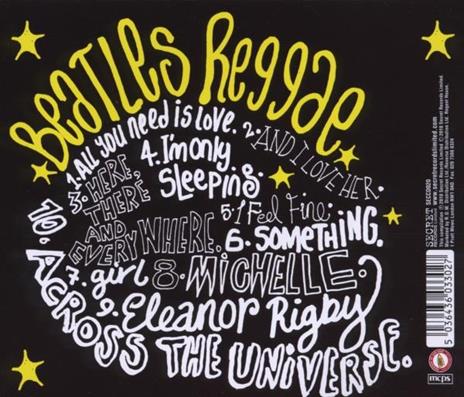 Beatles Reggae
1. All you need is love. 2. AND I LOVE HER.
3. HERE, THERE AND EVERYWHERE.
4. I'm only Sleeping
5. I Feel Fine.
6. SOMETHING.
7. girl 8. MICHELLE.
9. Eleanor Rigby
10. ACROSS THE UNIVERSE.
SECRET SECDR020
RECORDS LIMITED www.secretrecordslimited.com
5 036436 033027
mcps